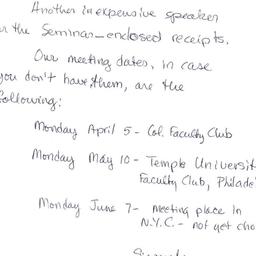 Another inexpensive speaker
the Seminar—enclosed receipts.
Our meeting dates, in case
you don't have them, are the
following:
Monday April 5 - Col. Faculty Club
Monday May 10 - Temple Universit
Faculty Club, Philade
Monday June 7 - meeting place in
N.Y.C. - not yet cho